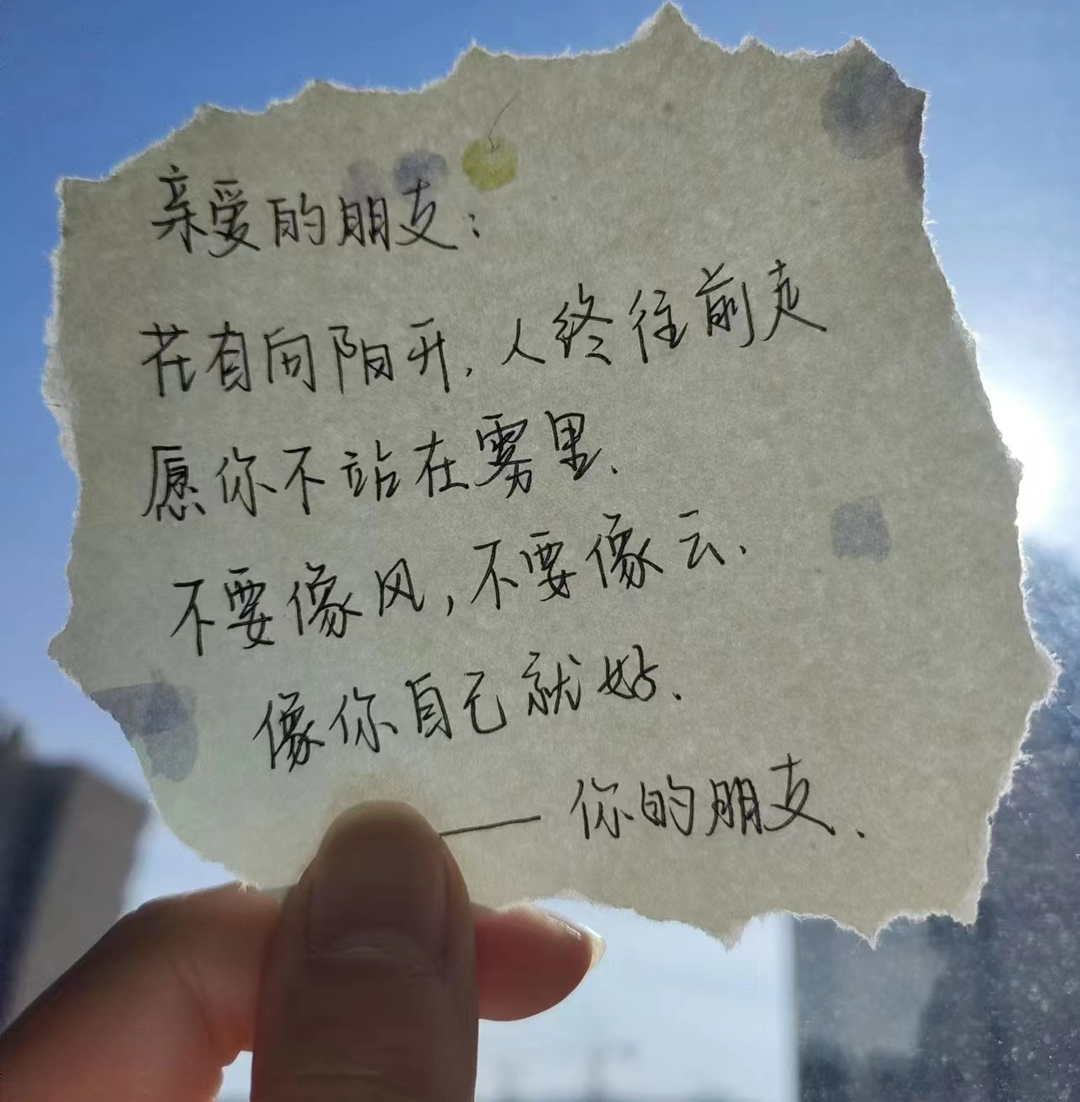 亲爱的朋友：
花有向阳开，人终往前走
愿你不站在雾里、
不要像风，不要像云、
像你自己就好、
——你的朋友、